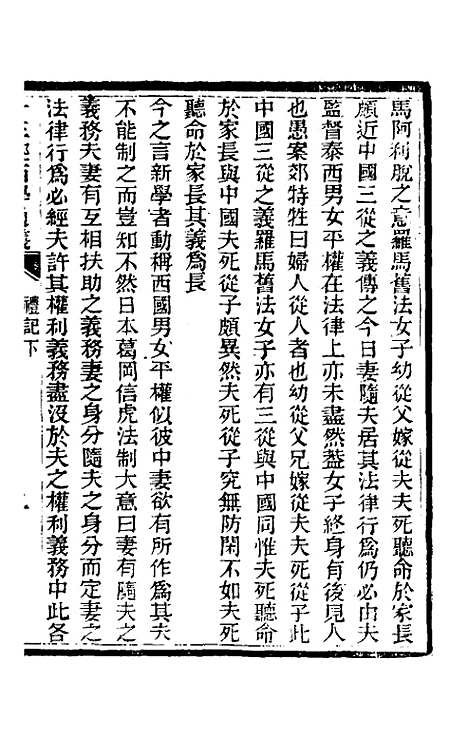 馬阿利脫之意羅馬舊法女子幼從父嫁從夫夫死聽命於家長
頗近中國三從之義傳之今日妻隨夫居其法律行爲仍必由夫
監督泰西男女平權在法律上亦未盡然蓋女子終身有後見人
也愚案郊特牲曰婦人從人者也幼從父兄嫁從夫夫死從子此
中國三從之義羅馬舊法女子亦有三從與中國同惟夫死聽命
於家長與中國夫死從子頗異然夫死從子究無防閑不如夫死
聽命於家長其義爲長
今之言新學者動稱西國男女平權似彼中妻欲有所作爲其夫
不能制之而豈知不然日本葛岡信虎法制大意曰妻有隨夫之
義務夫妻有互相扶助之義務妻之身分隨夫之身分而定妻之
法律行爲必經夫許其權利義務盡沒於夫之權利義務中此各
禮記下